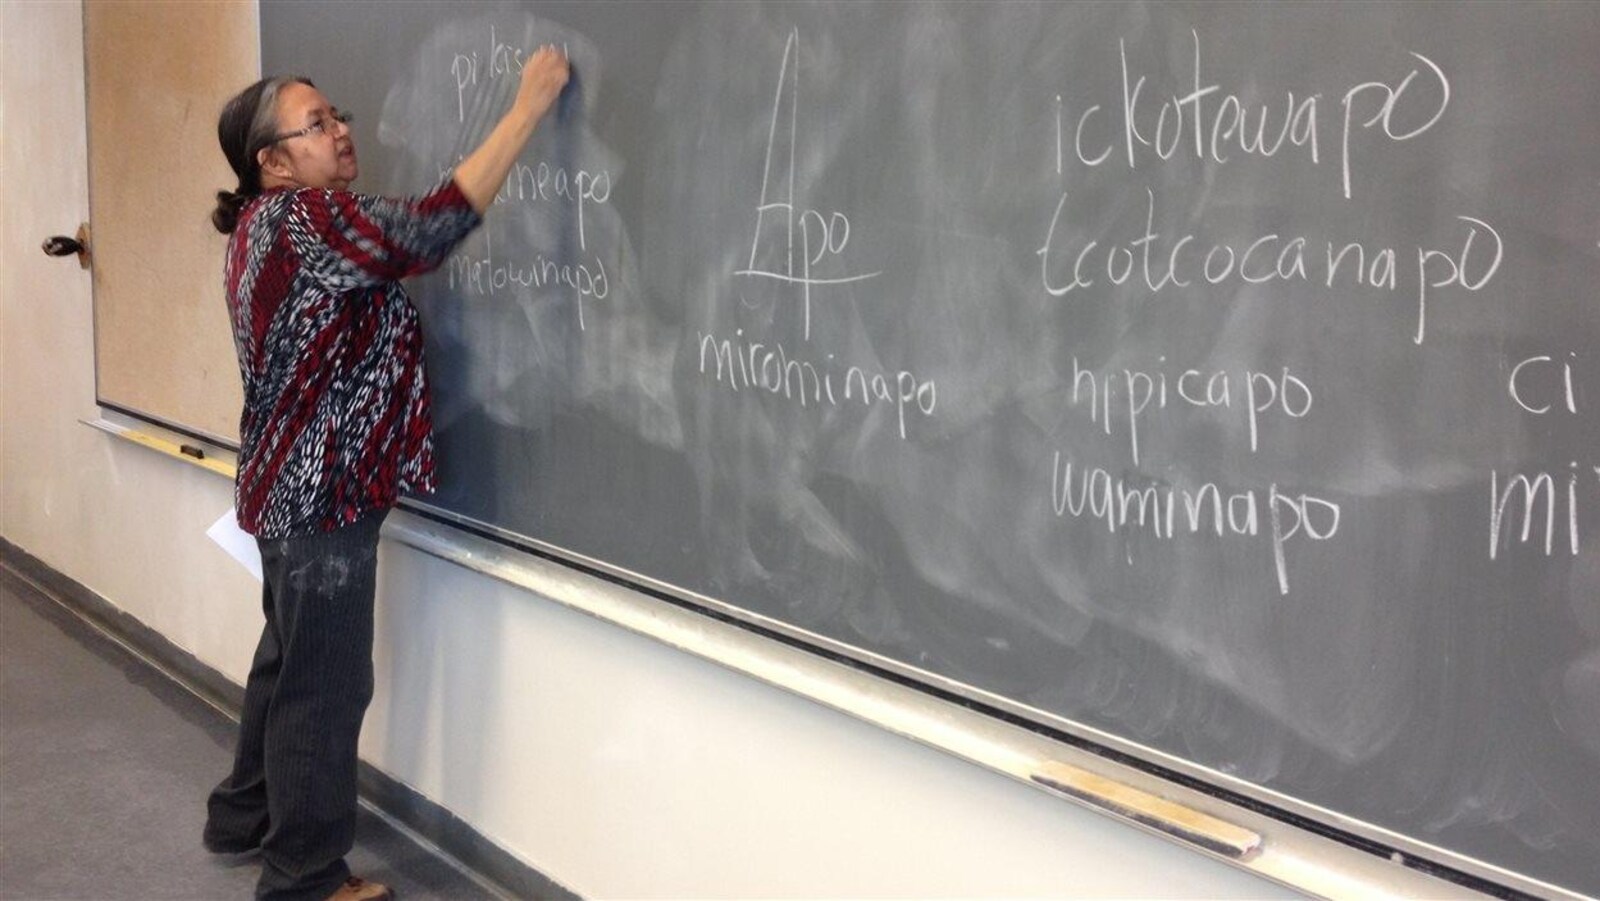 matowinapo
Apo
mirominapo
ickotewapo
tcotcocanapo
nipicapo
waminapo
ci
mi